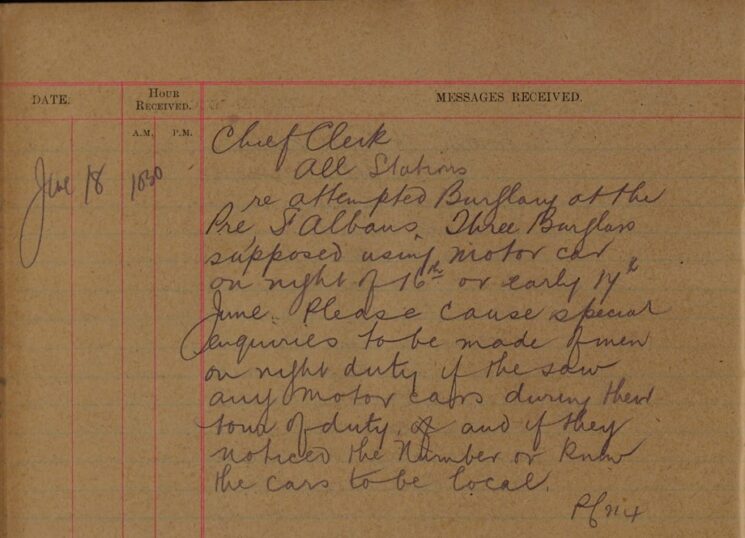 DATE. HOUR RECEIVED. MESSAGES RECEIVED.
A.M. P.M.
June 18 1030 Chief Clerk
All Stations
re attempted Burglary at the
Pre St Albans. Three Burglars
supposed using motor car
on night of 16th or early 17th
June. Please cause special
enquiries to be made of men
on night duty if the saw
any motor cars during their
tour of duty, & and if they
noticed the Number or knew
the cars to be local.